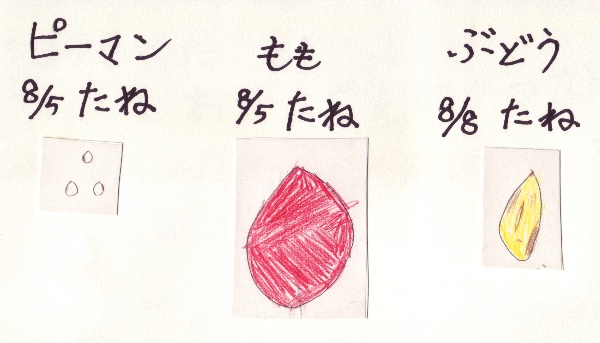 ピーマン
8/5 たね
もも
8/5 たね
ぶどう
8/8 たね